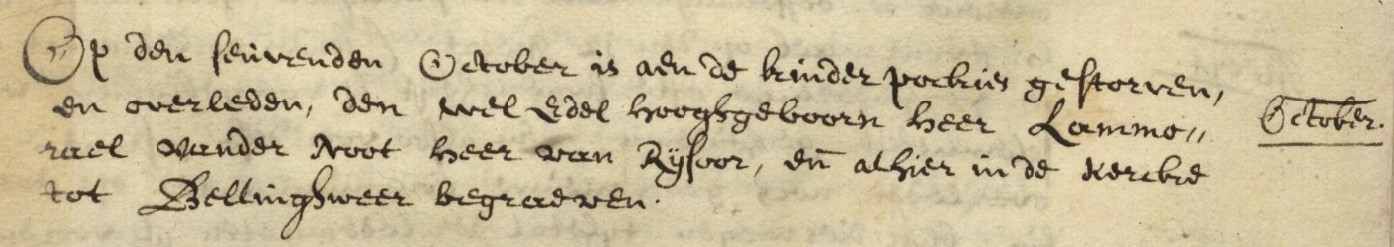 Op den seuvenden October is aen de kinder pockies gestorven,
en overleden, den wel Edel hooghgeboorn heer Lammo„
rael vander Noot heer van Rijsoor, en̄ alhier in de kercke
tot Bellinghweer begraeven.
October.